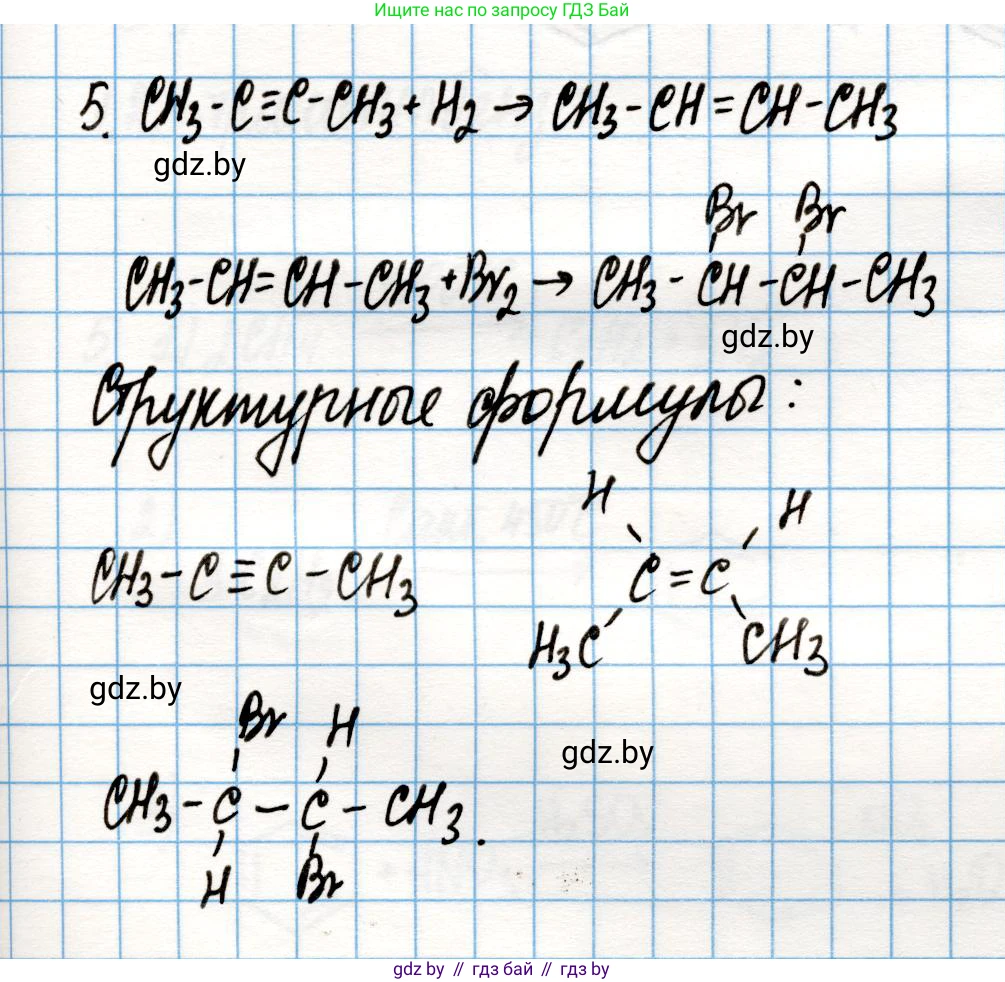 Ищите нас по запросу ГДЗ Бай
5. CH₃-C≡C-CH₃+H₂→CH₃-CH=CH-CH₃
gdz.by
Br Br
CH₃-CH=CH-CH₃+Br₂→CH₃-CH-CH-CH₃
gdz.by
Структурные формулы:
H H
CH₃-C≡C-CH₃ C=C
H₃C CH₃
gdz.by
Br H
gdz.by
CH₃-C-C-CH₃.
H Br
gdz.by // гдз бай // гдз by